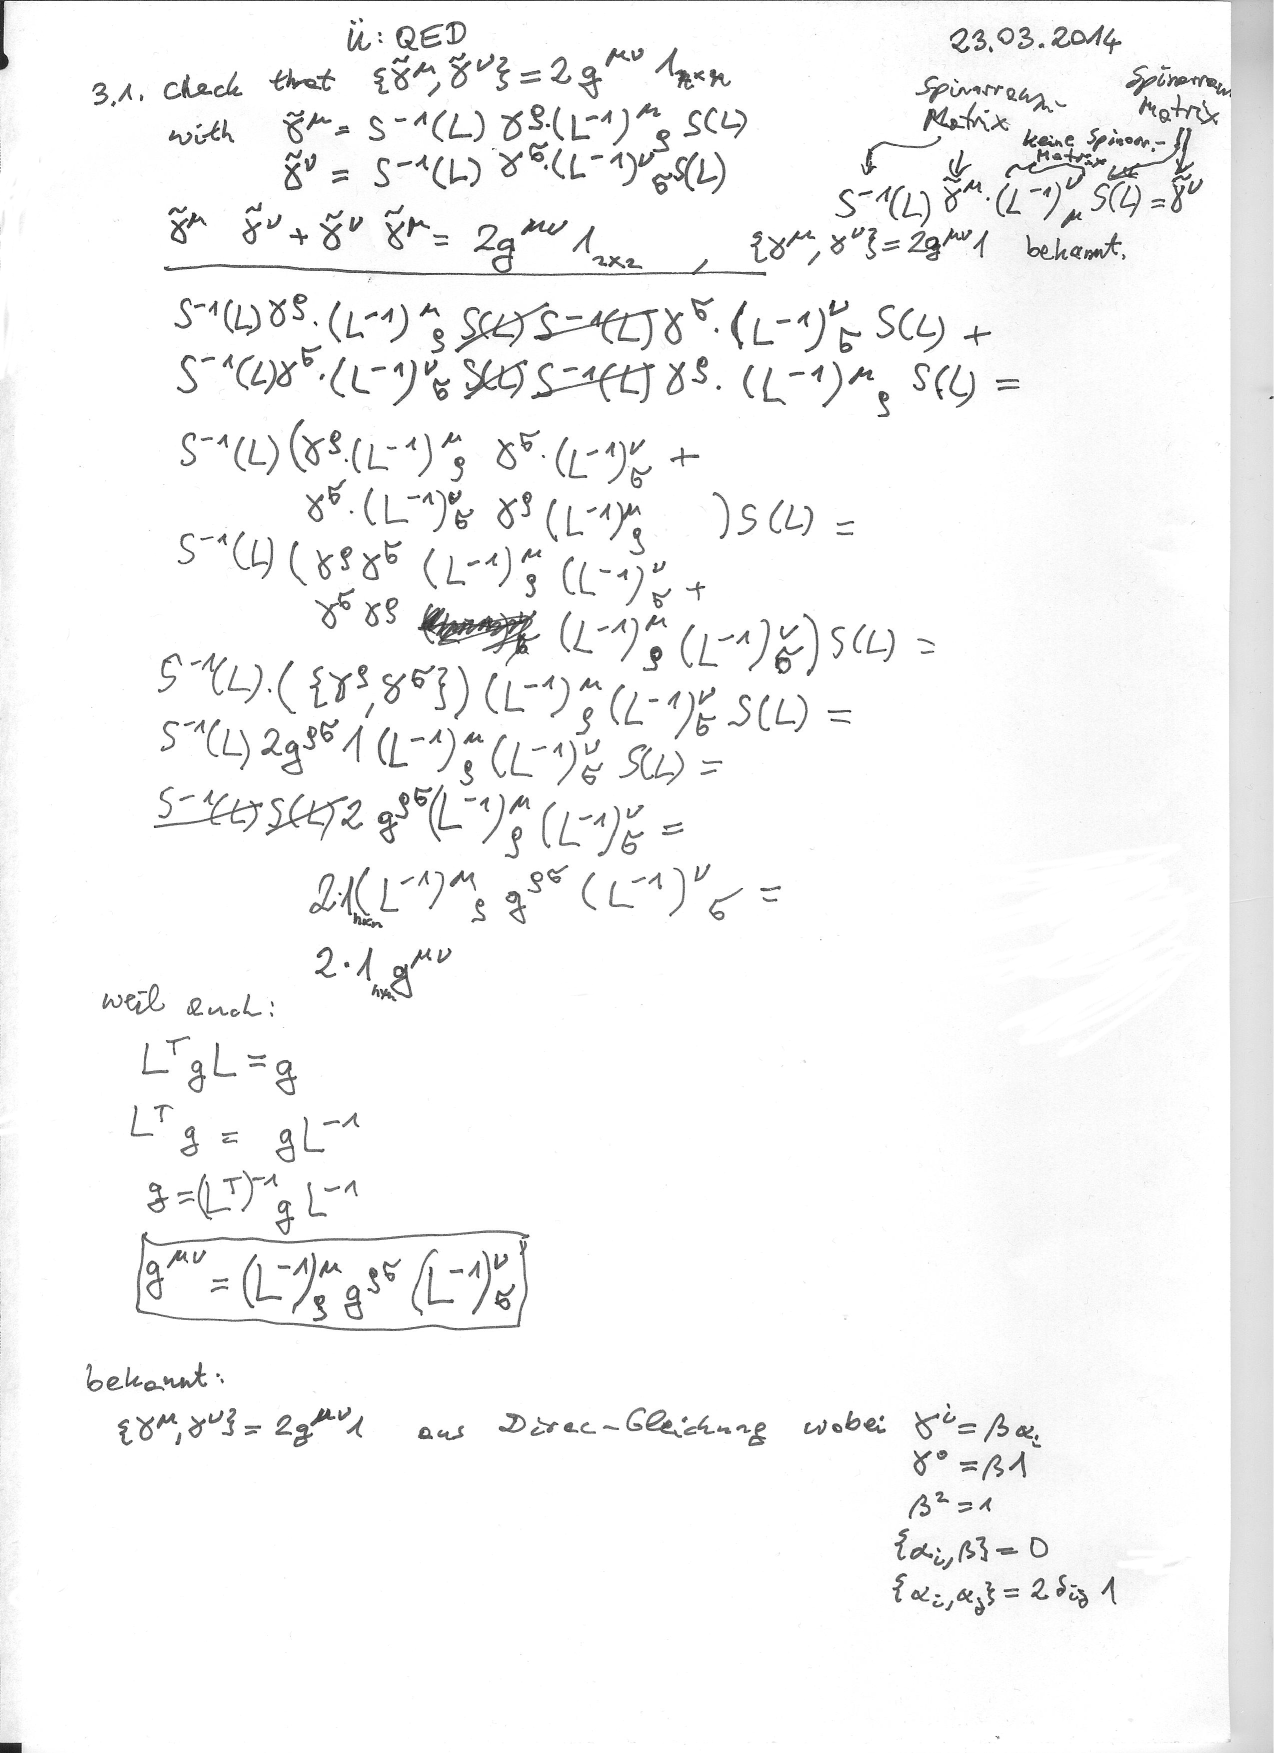 Ü: QED
23.03.2014
3.1. Check that {γ̃^μ, γ̃^ν} = 2g^{μν} 1_{n×n}
with γ̃^μ = S^{-1}(L) γ^ρ·(L^{-1})^μ_ρ S(L)
γ̃^ν = S^{-1}(L) γ^σ·(L^{-1})^ν_σ S(L)
Spinorraum-
Matrix
Spinorraum
Matrix
keine Spinorr.-
Matrix
S^{-1}(L) γ̃^μ·(L^{-1})^ν_μ S(L) = γ̃^ν
γ̃^μ γ̃^ν + γ̃^ν γ̃^μ = 2g^{μν} 1_{2×2} , {γ^μ, γ^ν} = 2g^{μν}1 bekannt.
S^{-1}(L) γ^ρ·(L^{-1})^μ_ρ S(L) S^{-1}(L) γ^σ·(L^{-1})^ν_σ S(L) +
S^{-1}(L) γ^σ·(L^{-1})^ν_σ S(L) S^{-1}(L) γ^ρ·(L^{-1})^μ_ρ S(L) =
S^{-1}(L) (γ^ρ·(L^{-1})^μ_ρ γ^σ·(L^{-1})^ν_σ +
γ^σ·(L^{-1})^ν_σ γ^ρ (L^{-1})^μ_ρ ) S(L) =
S^{-1}(L) (γ^ρ γ^σ (L^{-1})^μ_ρ (L^{-1})^ν_σ +
γ^σ γ^ρ (L^{-1})^μ_ρ (L^{-1})^ν_σ) S(L) =
S^{-1}(L)·({γ^ρ, γ^σ}) (L^{-1})^μ_ρ (L^{-1})^ν_σ S(L) =
S^{-1}(L) 2g^{ρσ} 1 (L^{-1})^μ_ρ (L^{-1})^ν_σ S(L) =
S^{-1}(L) S(L) 2 g^{ρσ} (L^{-1})^μ_ρ (L^{-1})^ν_σ =
2·1_{n×n} (L^{-1})^μ_ρ g^{ρσ} (L^{-1})^ν_σ =
2·1_{n×n} g^{μν}
weil auch:
L^T g L = g
L^T g = g L^{-1}
g = (L^T)^{-1} g L^{-1}
g^{μν} = (L^{-1})^μ_ρ g^{ρσ} (L^{-1})^ν_σ
bekannt:
{γ^μ, γ^ν} = 2g^{μν}1 aus Dirac-Gleichung wobei γ^i = βα_i
γ^0 = β1
β^2 = 1
{α_i, β} = 0
{α_i, α_j} = 2δ_{ij} 1